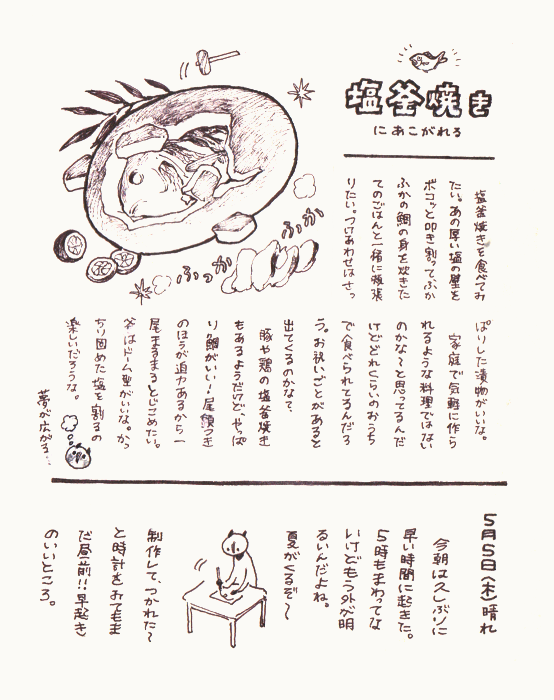 塩釜焼き
にあこがれる
塩釜焼きを食べてみ
たい。あの厚い塩の壁を
ボコッと叩き割ってふか
ふかの鯛の身を炊きた
てのごはんと一緒に頬張
りたい。つけあわせはさっ
ぱりした漬物がいいな。
家庭で気軽に作ら
れるような料理ではない
のかな〜と思ってるんだ
けどどれくらいのおうち
で食べられてるんだろ
う。お祝いごとがあると
出てくるのかな?
豚や鶏の塩釜焼き
もあるようだけど、やっぱ
り鯛がいい!尾頭つき
のほうが迫力あるから一
尾まるまるとじこめたい。
釜はドーム型がいいな。かっ
ちり固めた塩を割るの
楽しいだろうな。
夢が広がる…
ふっか
ふっか
5月5日(木)晴れ
今朝は久しぶりに
早い時間に起きた。
5時もまわってな
いけどもう外が明
るいんだよね。
夏がくるぞ〜
制作して、つかれた〜
と時計をみてもま
だ昼前!!早起き
のいいところ。